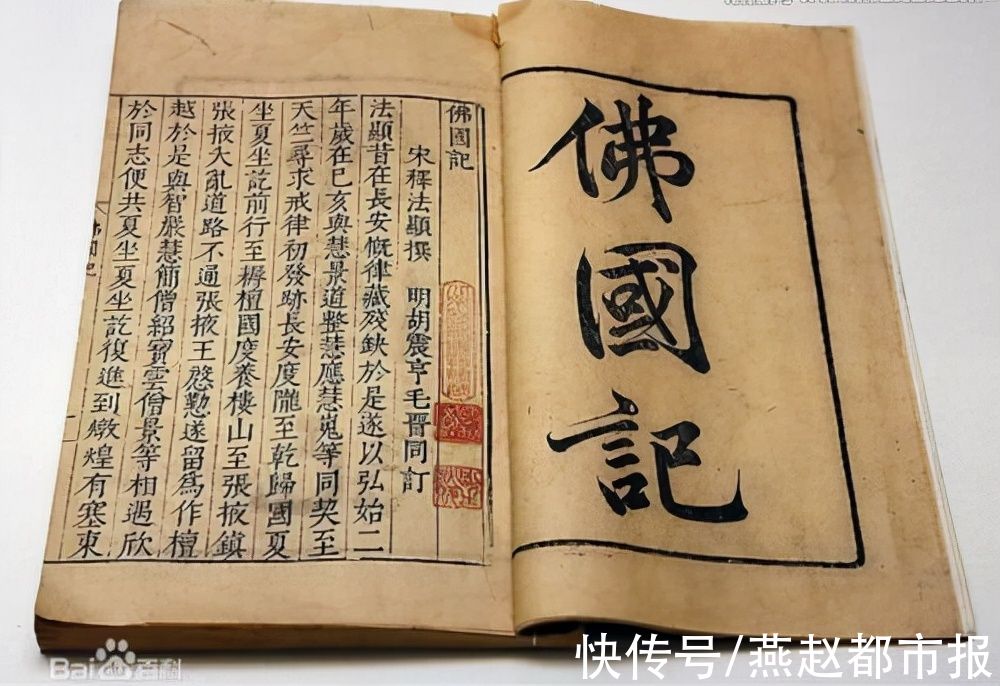 佛國記
佛國記
宋釋法顯撰 明胡震亨毛晉同訂
法顯昔在長安慨律藏殘缺於是遂以弘始二
年歲在己亥與慧景道整慧應慧嵬等同契至
天竺尋求戒律初發跡長安度隴至乾歸國夏
坐夏坐訖前行至耨檀國度養樓山至張掖鎮
張掖大亂道路不通張掖王慇懃遂留爲作檀
越於是與智嚴慧簡僧紹寶雲僧景等相遇欣
於同志便共夏坐夏坐訖復進到燉煌有塞東
佛國記
Bai百科
快传号/燕赵都市报